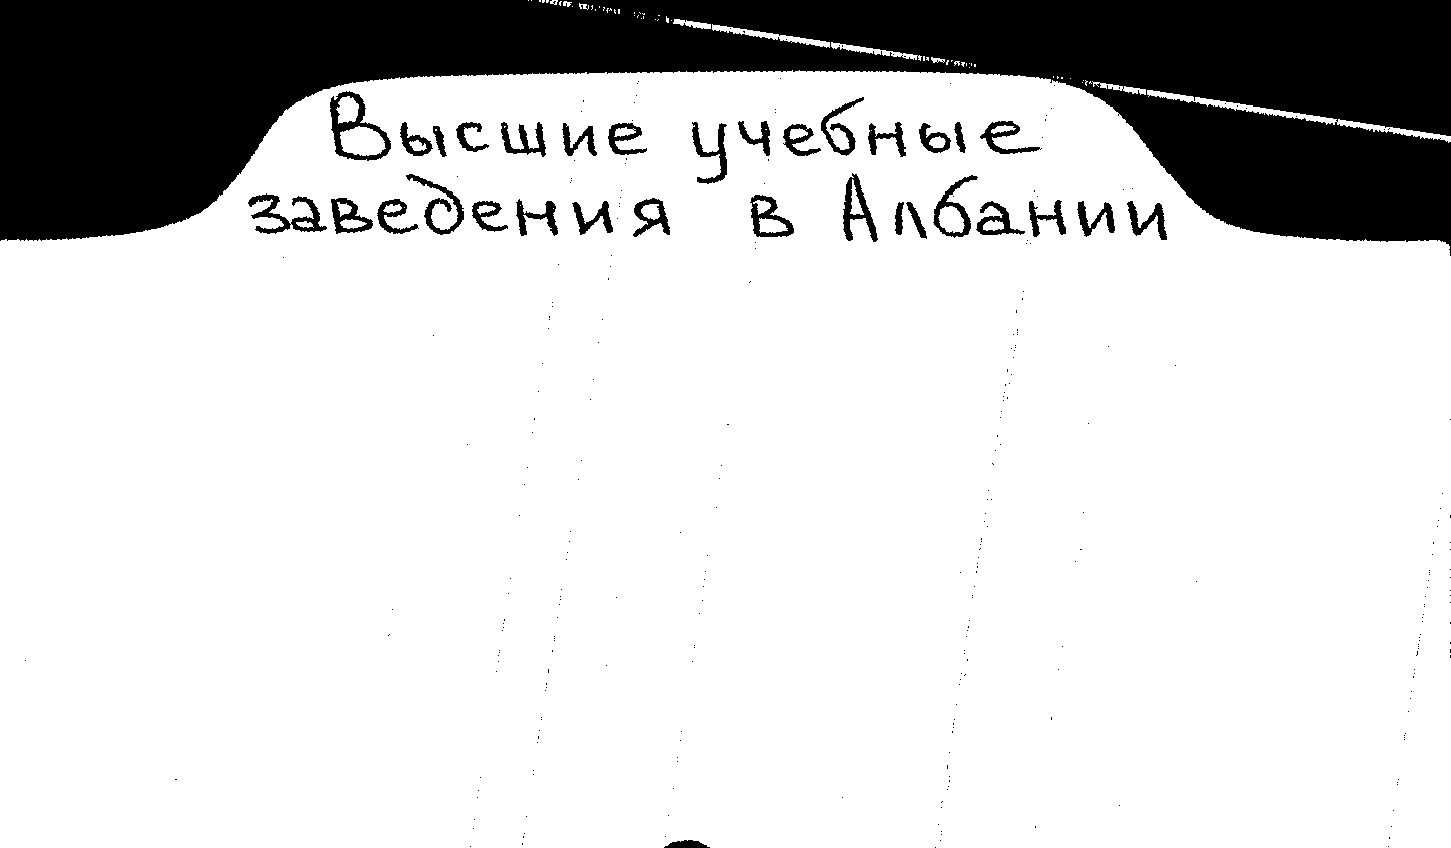 Высшие учебные
заведения в Албании